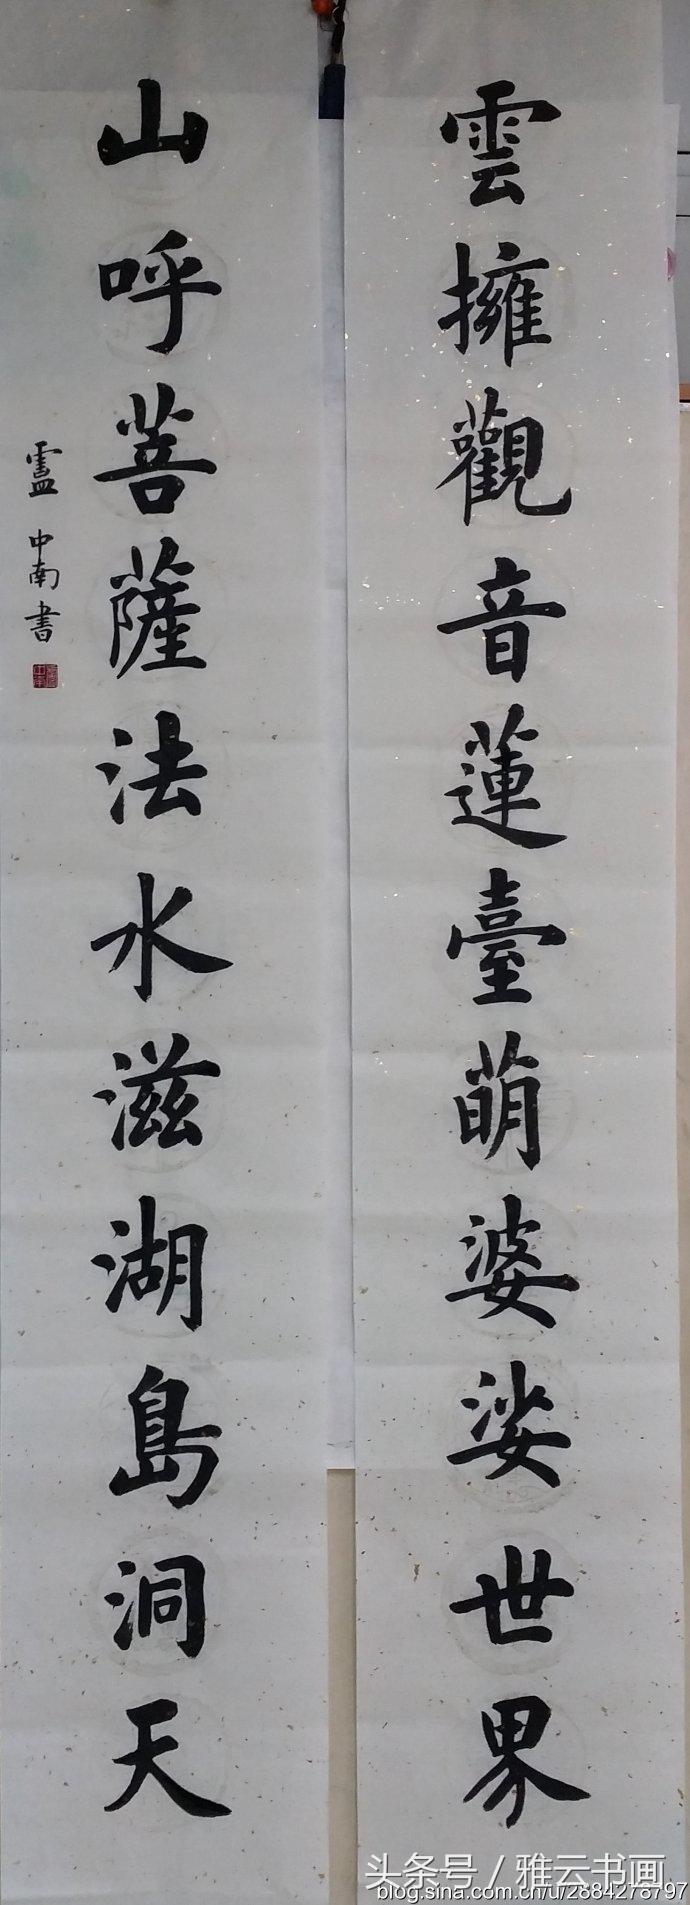 雲擁觀音蓮臺萌婆娑世界
山呼菩薩法水滋湖島洞天
盧中南書
头条号 / 雅云书画
blog.sina.com.cn/u/2684278797